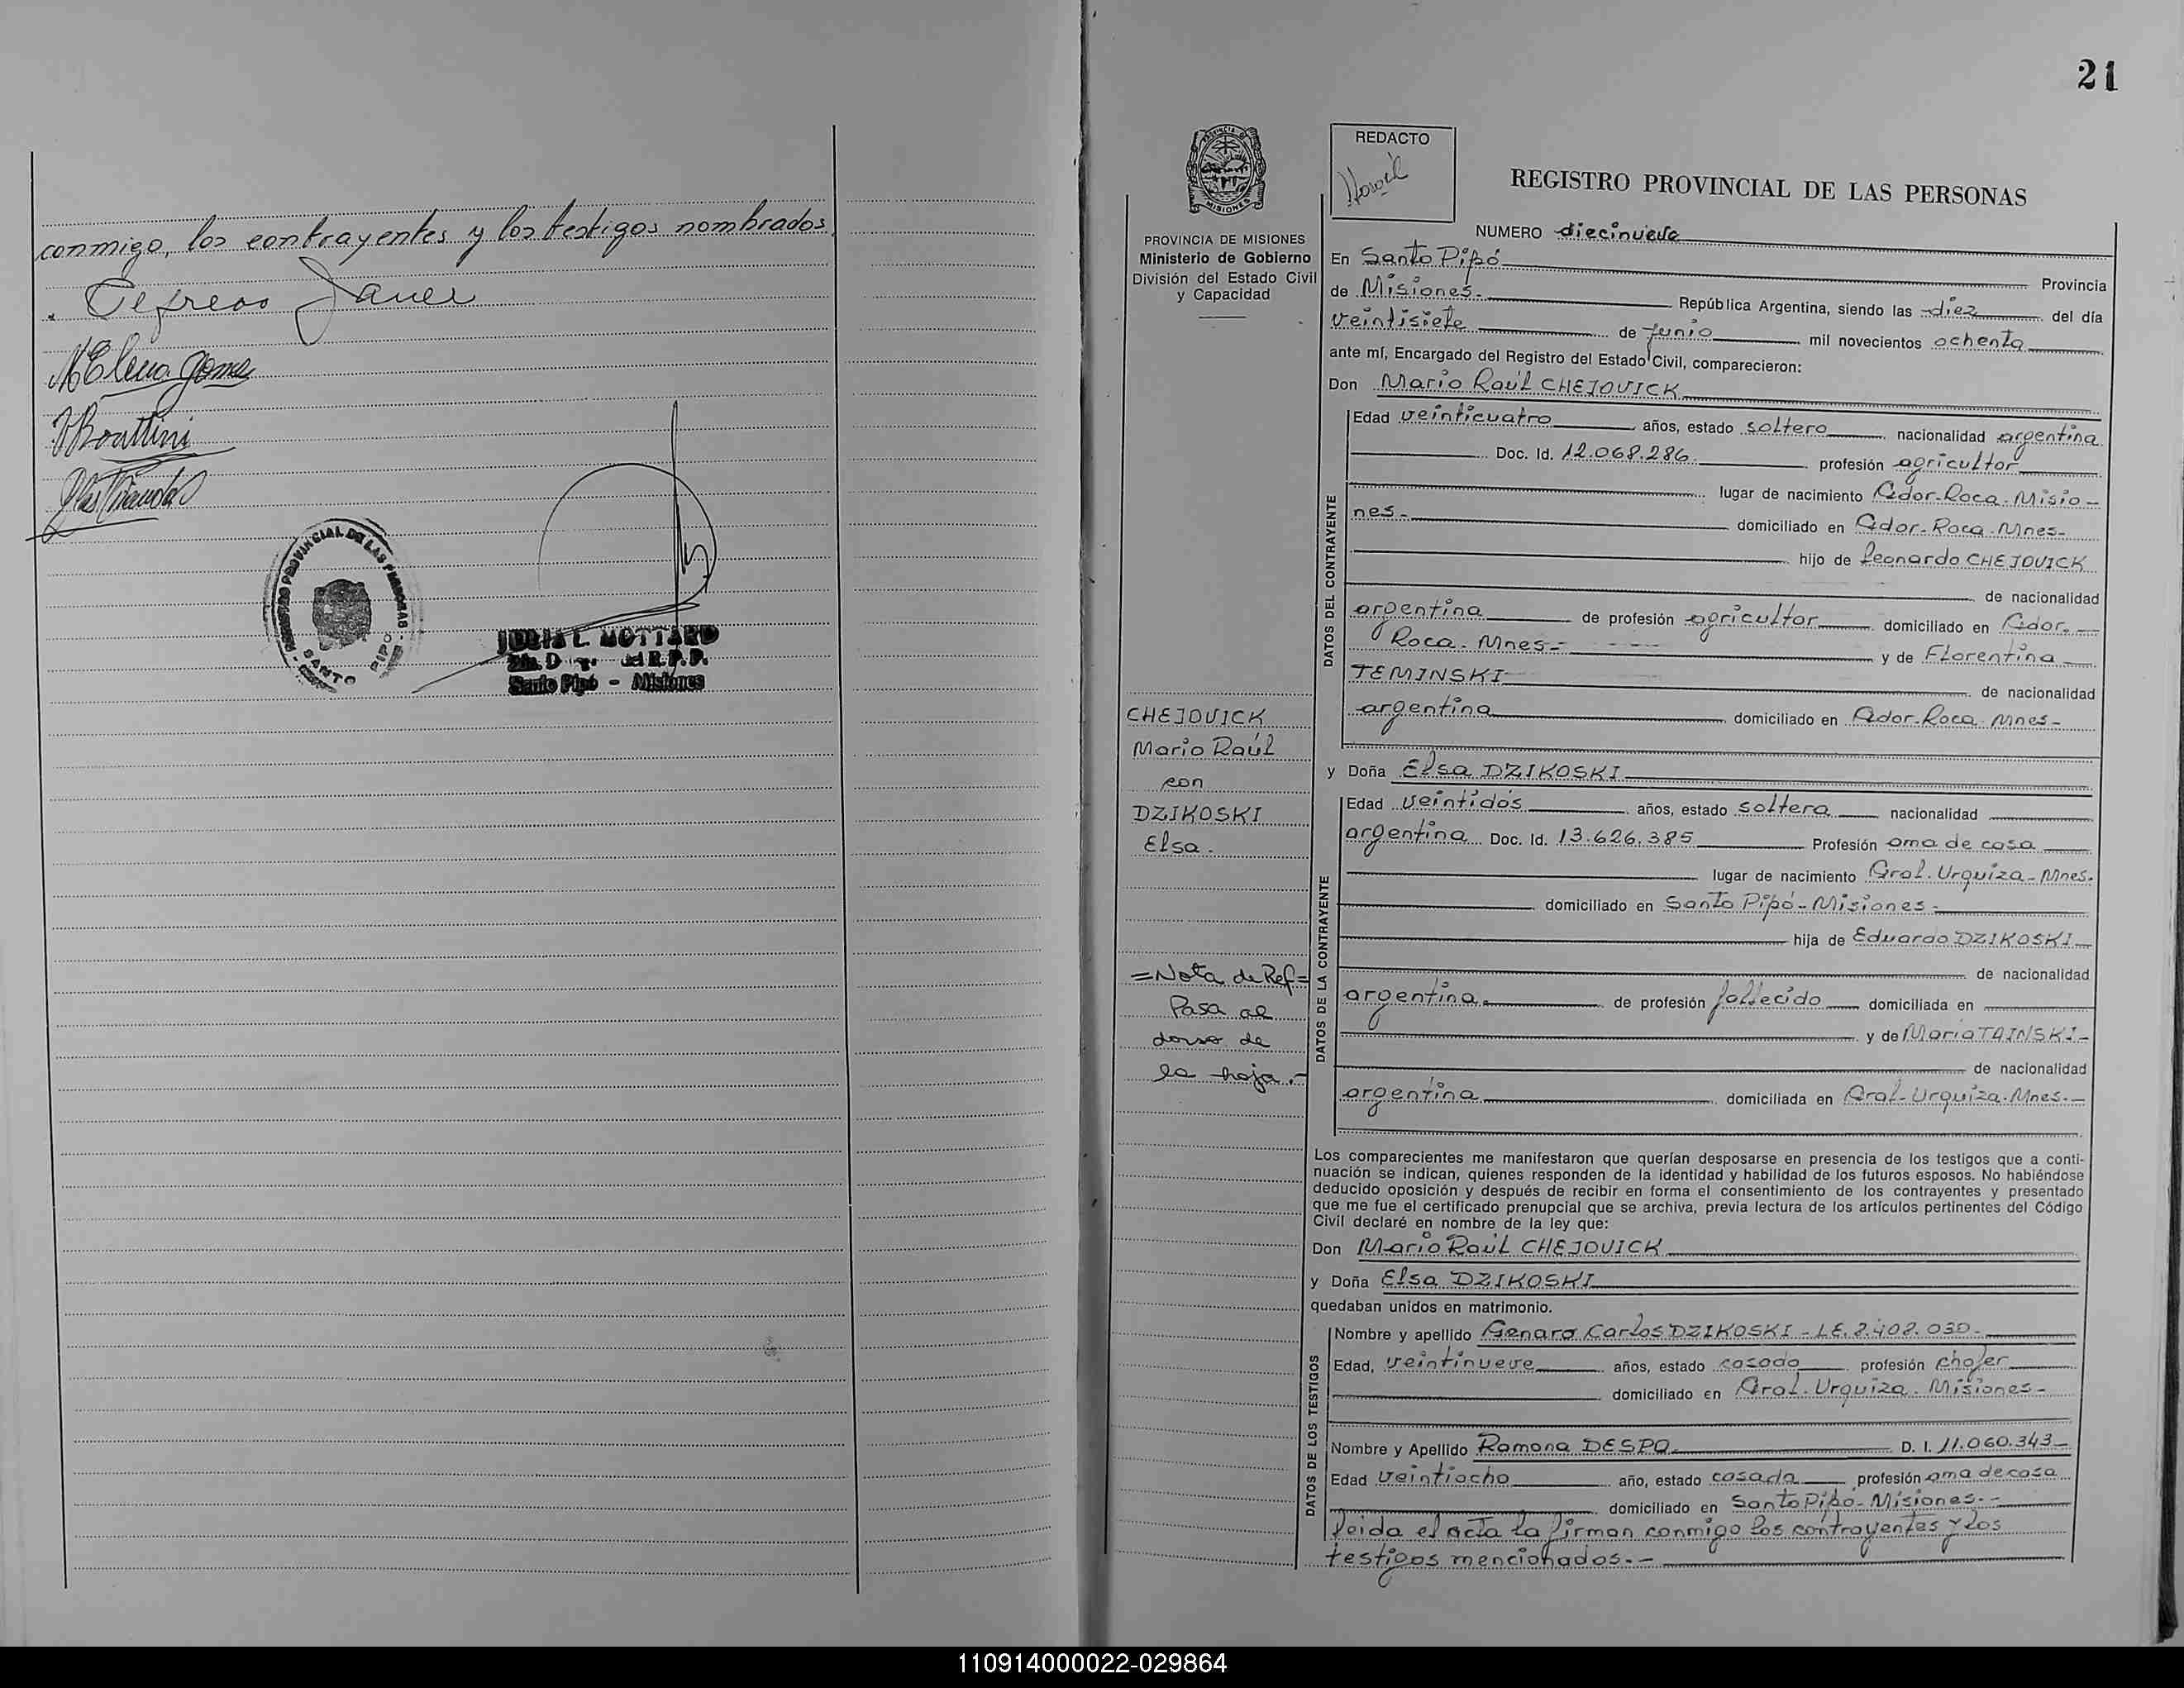 conmigo, los contrayentes y los testigos nombrados.
M Elena Gomez
REGISTRO PROVINCIAL DE LAS PERSONAS
SANTO PIPO
JULIA L. MOTTARD
del R.P.P.
Santo Pipó - Misiones
21
PROVINCIA DE MISIONES
Ministerio de Gobierno
División del Estado Civil
y Capacidad
CHEJOVICK
Mario Raúl
con
DZIKOSKI
Elsa.
=Nota de Ref=
Pasa al
dorso de
la hoja.-
REDACTO
REGISTRO PROVINCIAL DE LAS PERSONAS
NUMERO diecinueve
En Santo Pipó Provincia
de Misiones.- República Argentina, siendo las diez del día
veintisiete de junio mil novecientos ochenta
ante mí, Encargado del Registro del Estado Civil, comparecieron:
Don Mario Raúl CHEJOVICK
DATOS DEL CONTRAYENTE
Edad veinticuatro años, estado soltero nacionalidad argentina
Doc. Id. 12.068.286. profesión agricultor
lugar de nacimiento Gdor. Roca. Misio-
nes.- domiciliado en Gdor. Roca. Mnes.-
hijo de Leonardo CHEJOVICK
de nacionalidad
argentina de profesión agricultor domiciliado en Gdor.
Roca. Mnes.- y de Florentina
TEMINSKI de nacionalidad
argentina domiciliado en Gdor. Roca. Mnes.-
y Doña Elsa DZIKOSKI
DATOS DE LA CONTRAYENTE
Edad veintidós años, estado soltera nacionalidad
argentina Doc. Id. 13.626.385 Profesión ama de casa
lugar de nacimiento Gral. Urquiza - Mnes.
domiciliado en Santo Pipó - Misiones.-
hija de Eduardo DZIKOSKI
de nacionalidad
argentina. de profesión fallecido domiciliada en
y de María TAINSKI-
de nacionalidad
argentina domiciliada en Gral. Urquiza. Mnes.-
Los comparecientes me manifestaron que querían desposarse en presencia de los testigos que a conti-
nuación se indican, quienes responden de la identidad y habilidad de los futuros esposos. No habiéndose
deducido oposición y después de recibir en forma el consentimiento de los contrayentes y presentado
que me fue el certificado prenupcial que se archiva, previa lectura de los artículos pertinentes del Código
Civil declaré en nombre de la ley que:
Don Mario Raúl CHEJOVICK
y Doña Elsa DZIKOSKI
quedaban unidos en matrimonio.
DATOS DE LOS TESTIGOS
Nombre y apellido Genaro Carlos DZIKOSKI - L.E. 8.408.030-
Edad, veintinueve años, estado casado profesión chofer
domiciliado en Gral. Urquiza. Misiones-
Nombre y Apellido Ramona DESPO D. I. 11.060.343-
Edad veintiocho año, estado casada profesión ama de casa
domiciliado en Santo Pipó - Misiones.-
leida el acta la firman conmigo los contrayentes y los
testigos mencionados.-
110914000022-029864